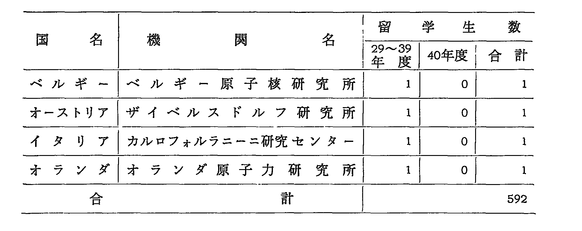 国名 機関名 留学生数
29~39年度 40年度 合計
ベルギー ベルギー原子核研究所 1 0 1
オーストリア ザイベルスドルフ研究所 1 0 1
イタリア カルロフォルラニーニ研究センター 1 0 1
オランダ オランダ原子力研究所 1 0 1
合計 592